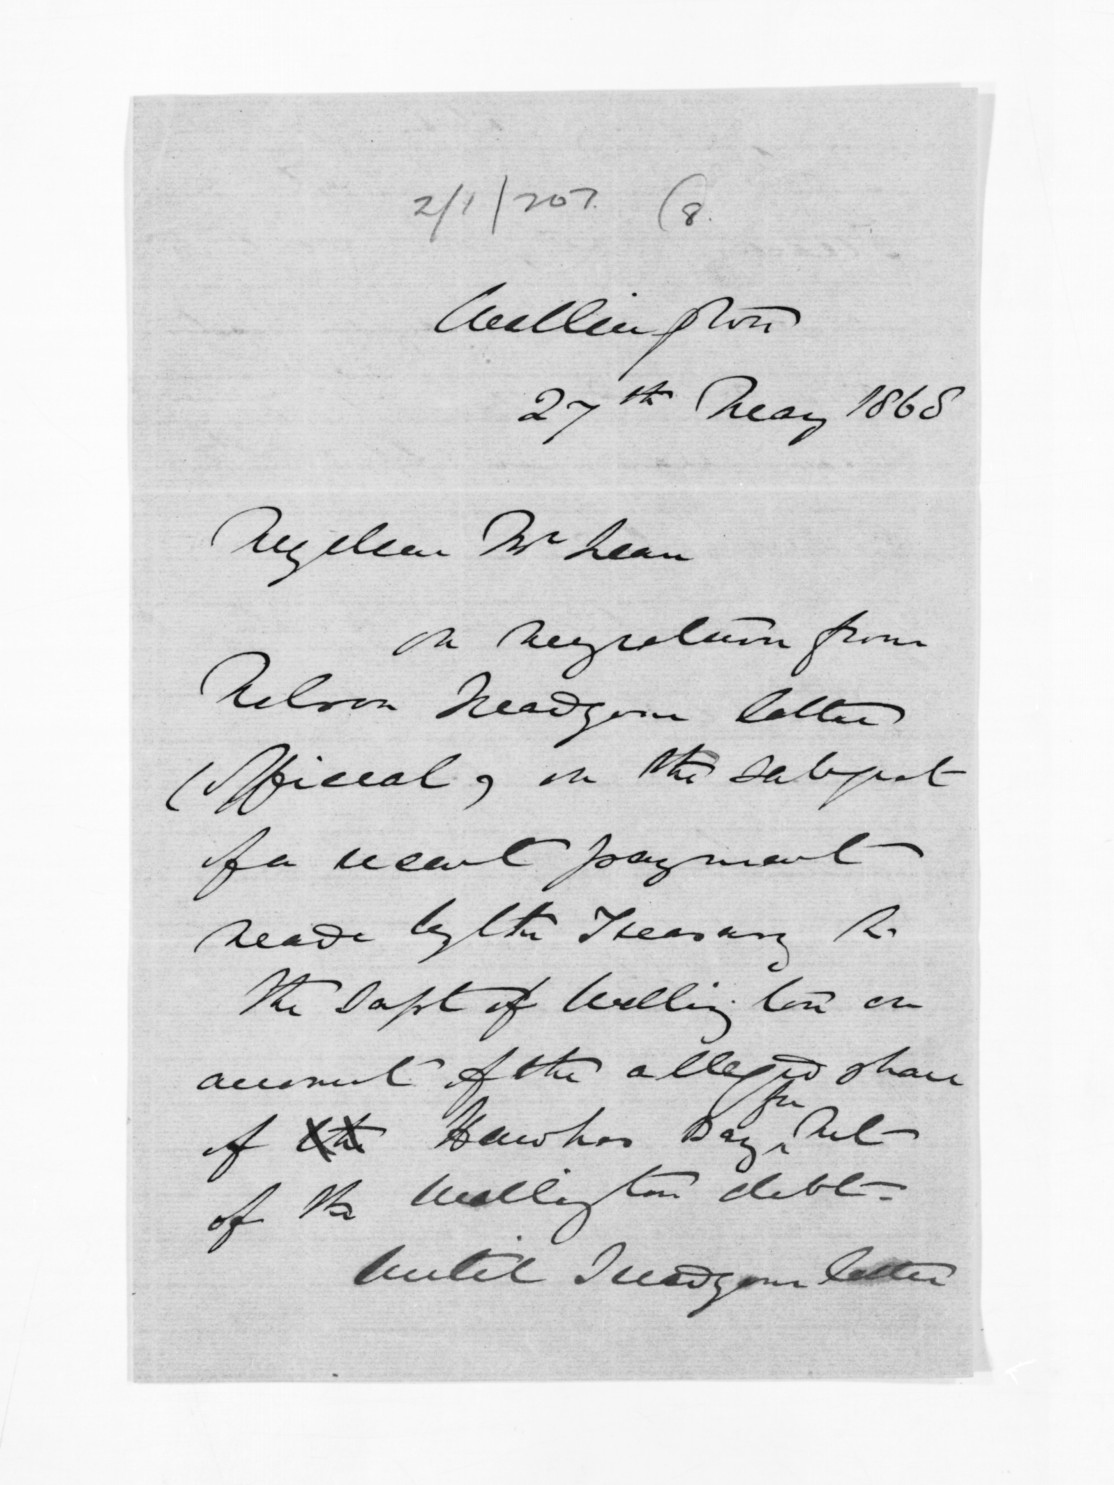 2/1/207. (8.
Wellington
27th May 1868
My dear McLean
On my return from
Nelson I read your letter
(Official) on the subject
of a recent payment
made by the Treasury to
the Supt of Wellington on
account of the alleged share
of the Hawkes Bay for Int
of the Wellington debt.
Until I read your letter